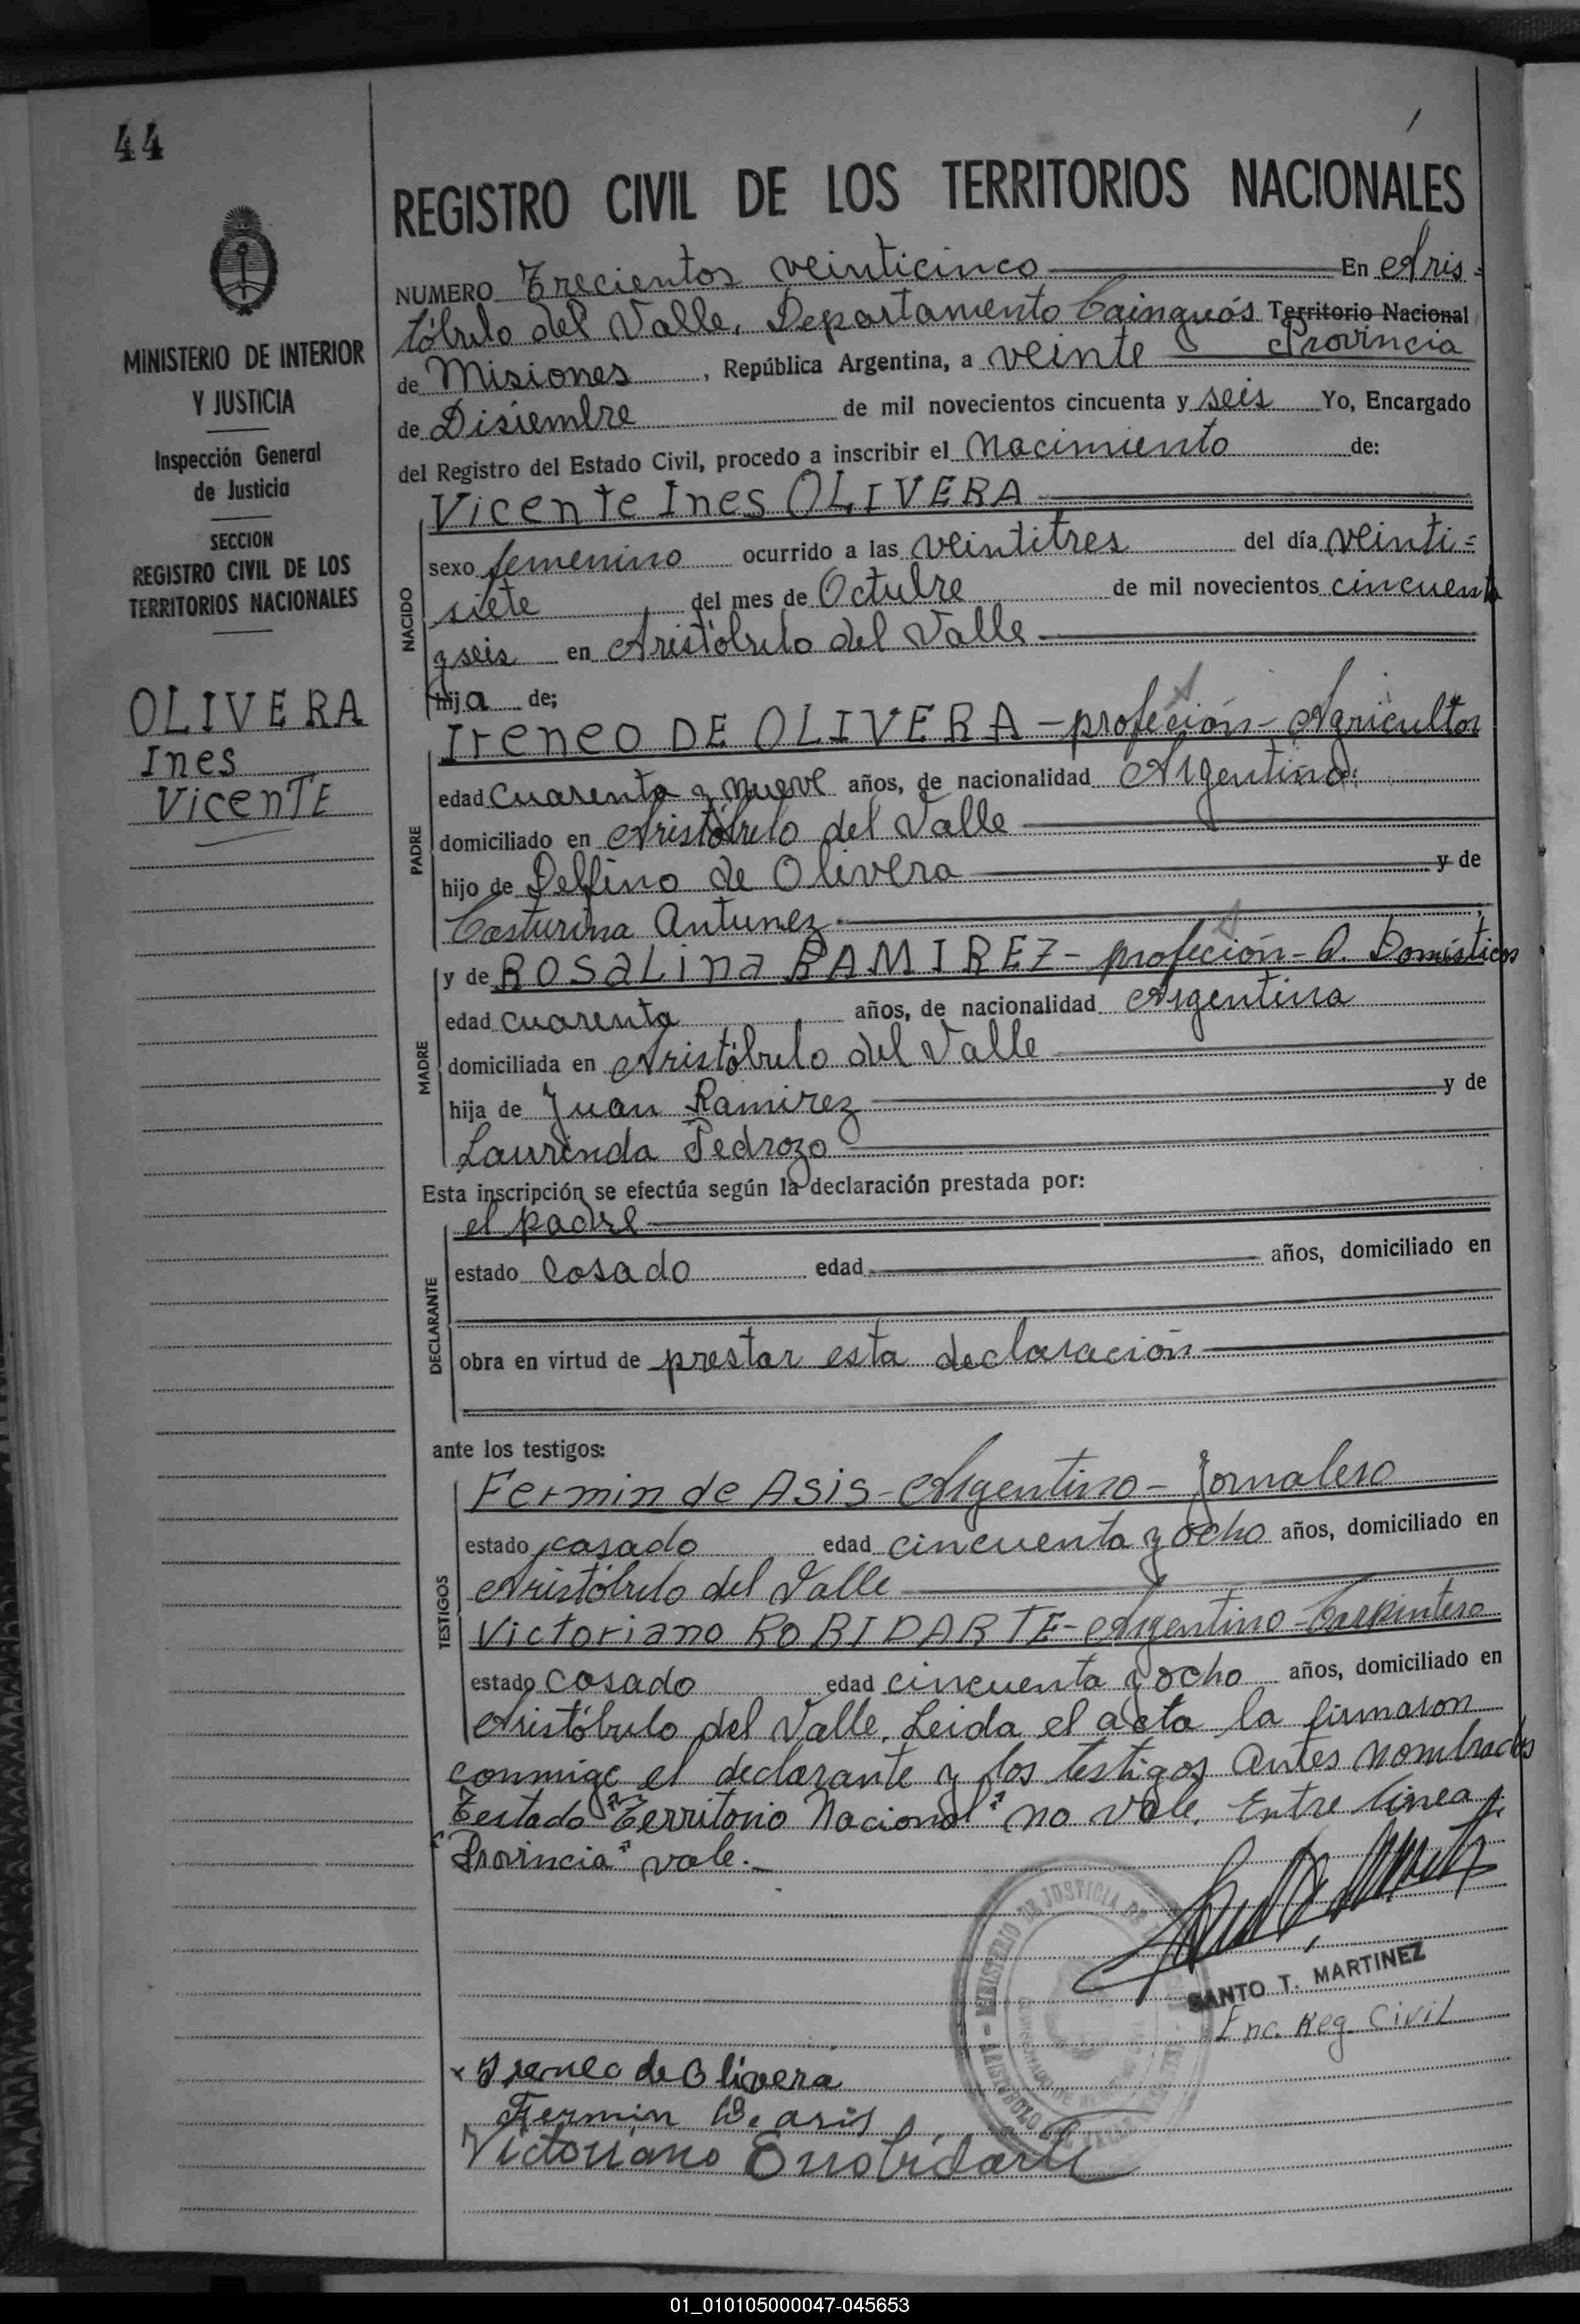 44
REGISTRO CIVIL DE LOS TERRITORIOS NACIONALES
MINISTERIO DE INTERIOR
Y JUSTICIA
Inspección General
de Justicia
SECCION
REGISTRO CIVIL DE LOS
TERRITORIOS NACIONALES
OLIVERA
Ines
Vicente
NUMERO Trecientos veinticinco En Aris=
tóbulo del Valle, Departamento Cainguás Territorio Nacional
Provincia
de Misiones, República Argentina, a veinte
de Disiembre de mil novecientos cincuenta y seis Yo, Encargado
del Registro del Estado Civil, procedo a inscribir el Nacimiento de:
NACIDO
Vicente Ines OLIVERA
sexo femenino ocurrido a las veintitres del día veinti=
siete del mes de Octubre de mil novecientos cincuenta
y seis en Aristóbulo del Valle
hija de;
PADRE
Ireneo DE OLIVERA - profeción - Agricultor
edad cuarenta y nueve años, de nacionalidad Argentina
domiciliado en Aristóbulo del Valle
hijo de Delfino de Olivera y de
Casturina Antunez
MADRE
y de Rosalina RAMIREZ - profeción - Q. Domésticos
edad cuarenta años, de nacionalidad Argentina
domiciliada en Aristóbulo del Valle
hija de Juan Ramirez y de
Laurinda Pedrozo
Esta inscripción se efectúa según la declaración prestada por:
DECLARANTE
el padre
estado casado edad años, domiciliado en
obra en virtud de prestar esta declaración
ante los testigos:
TESTIGOS
Fermin de Asis - Argentino - Jornalero
estado casado edad cincuenta y ocho años, domiciliado en
Aristóbulo del Valle
Victoriano ROBIDARTE - Argentino - Carpintero
estado casado edad cincuenta y ocho años, domiciliado en
Aristóbulo del Valle. Leida el acta la firmaron
conmigo el declarante y los testigos antes nombrados
Testado "Territorio Nacional" no vale. Entre linea
"Provincia" vale.-
MINISTERIO DE JUSTICIA DE
ARISTOBULO
SANTO T. MARTINEZ
Enc. Reg. Civil
x Ireneo de Olivera
Fermin De asis
Victoriano Errobidarte
01_010105000047-045653